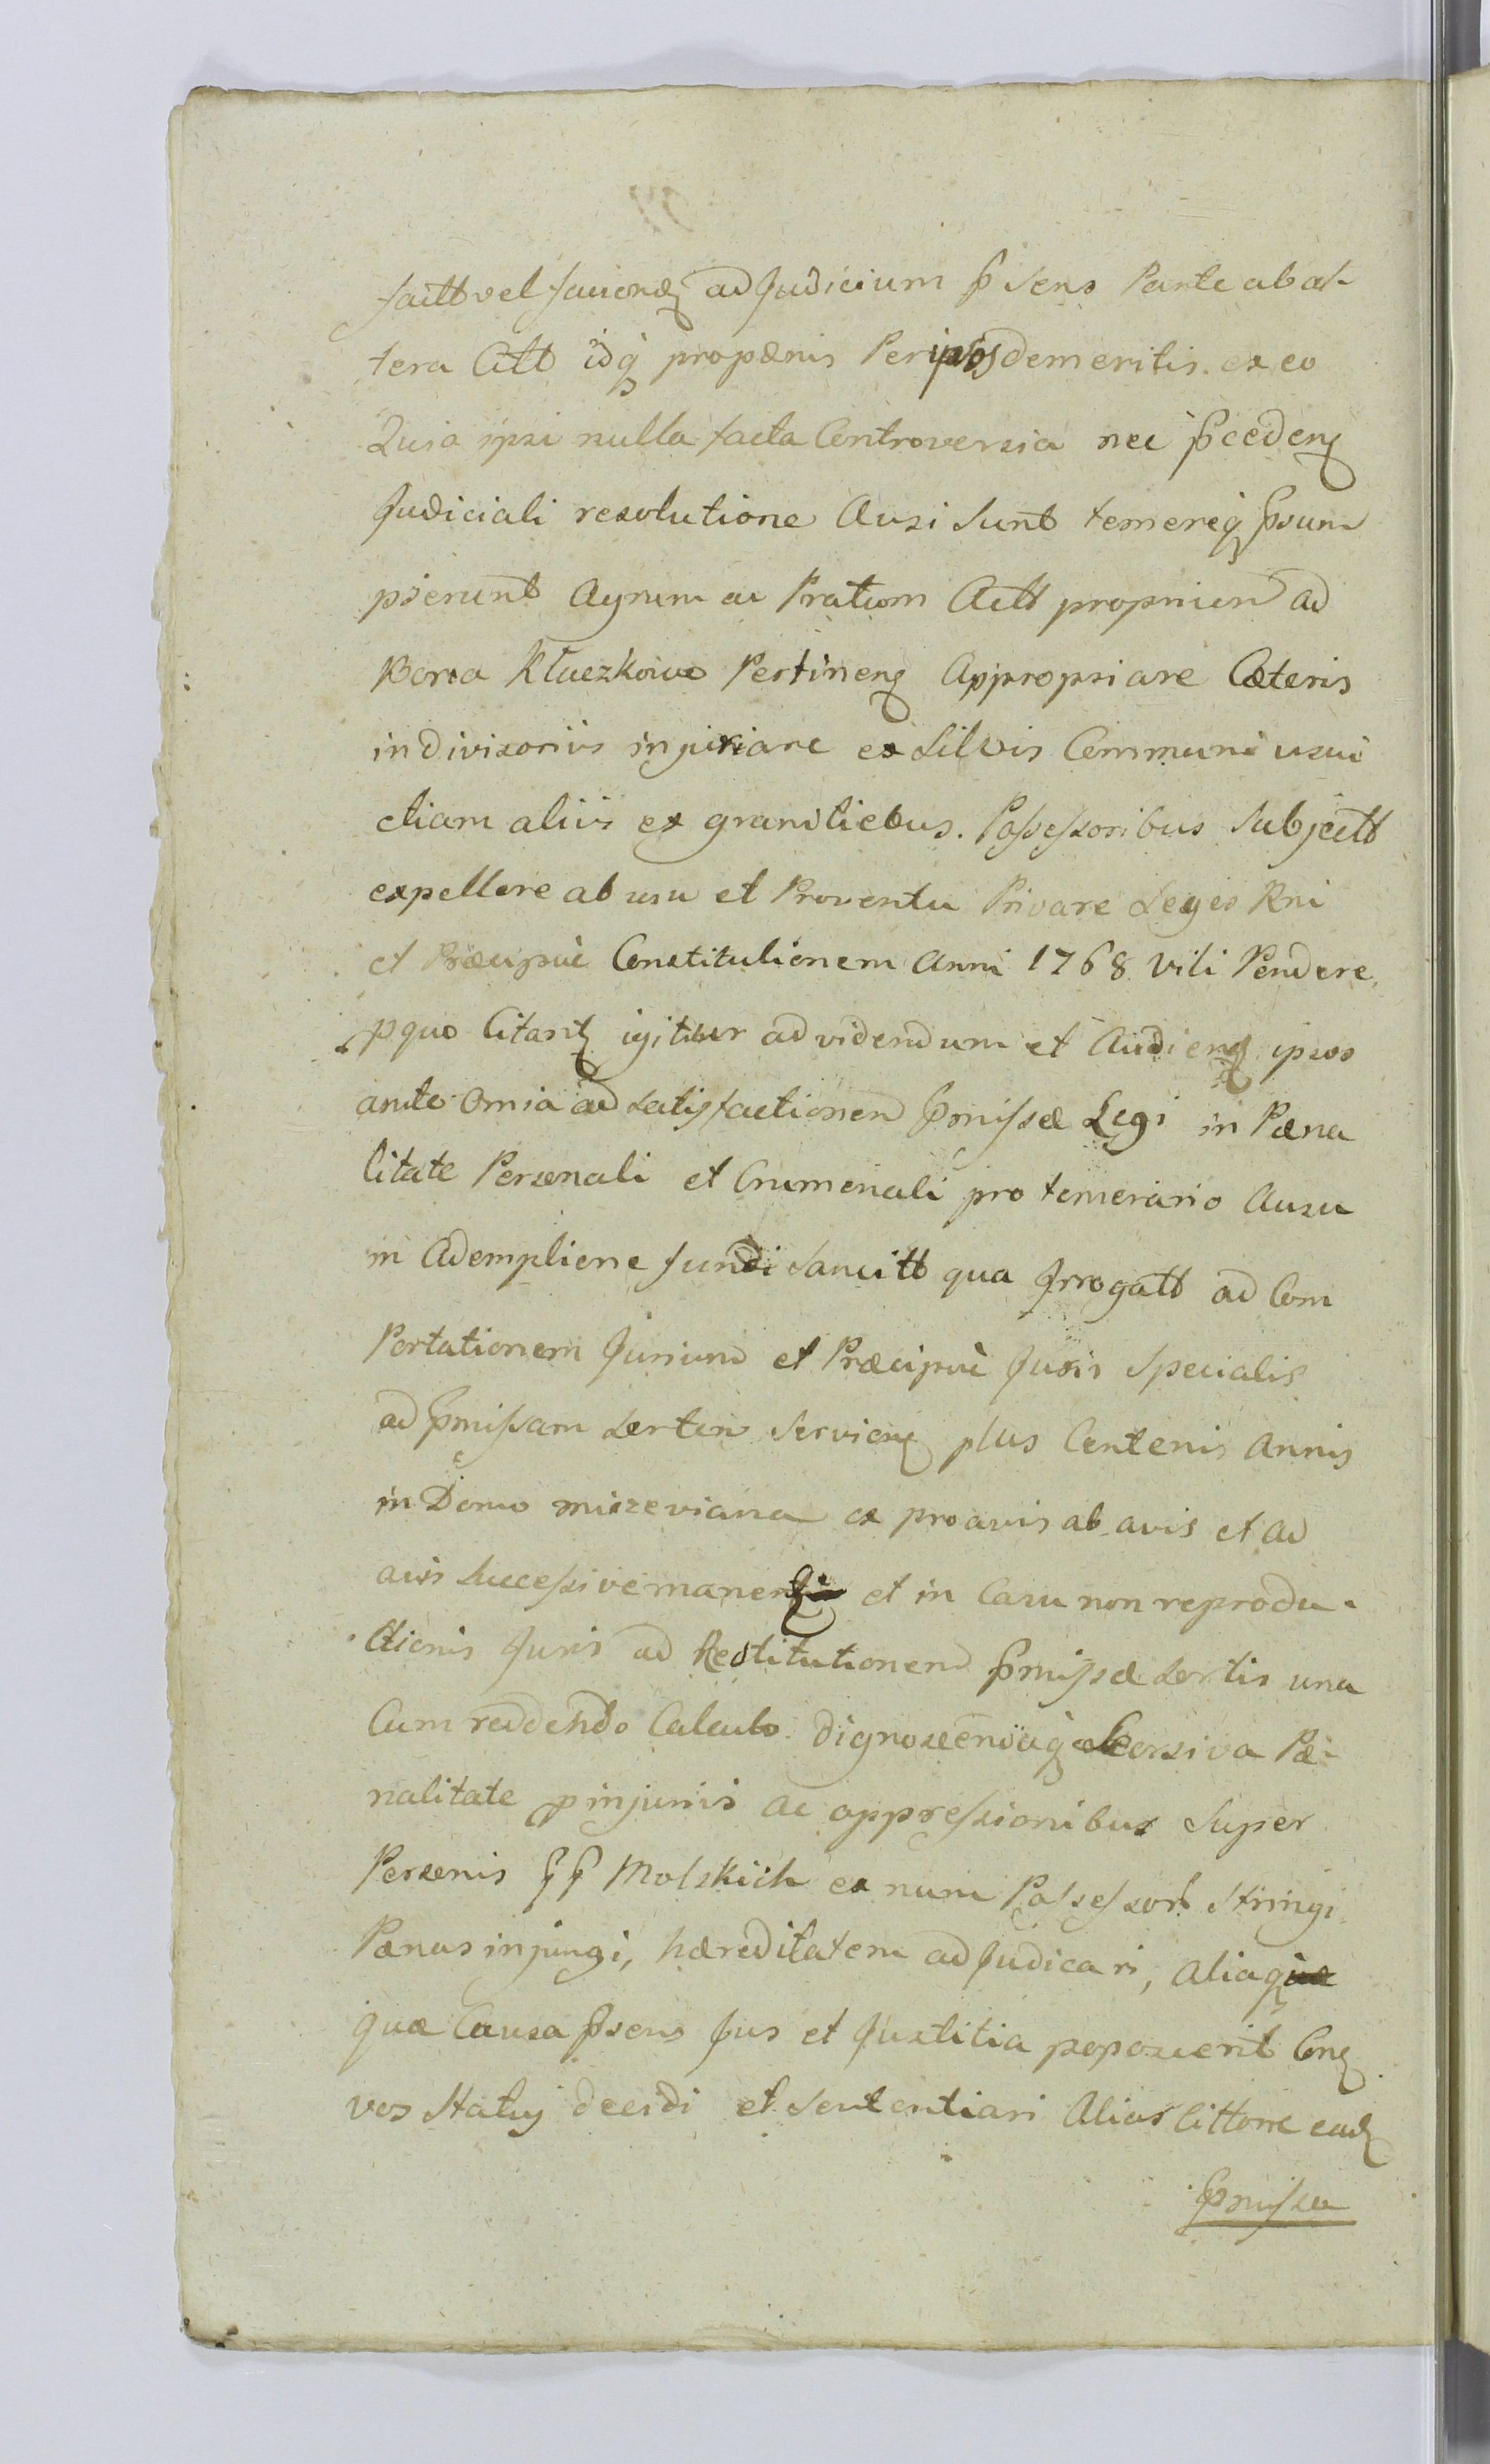 factt vel faciend ad Judicium psens Parte ab al-
tera Citt idq propænis Per ipsos demeritis ex eo
Quia ipsi nulla facta Controversia nec pcedenq
Judiciali resolutione Ausi Sunt temereq psum
pserunt Agrum ac Pratum Actt proprium ad
Bona Kluczkowo Pertinenq Appropriare Cæteris
indivisoriis injuriare ex Silvis Communi usui
etiam aliis ex granitiebus. Possessoribus Subjectt
expellere ab usu et Proventu Privare Leges Rni
et Præcipuè Constitutionem Anni 1768 Vili Pendere,
pquo Citantq igitur ad videndum et Audienq ipsos
ante Omia ad satisfactionem pmissæ Legi in Pæna
litate Personali et Crumenali pro temerario Ausu
in Ademptione fundi Sancitt qua Irrogatt ad Com
Portationem Jurium et Præcipuè Juris Specialis
ad pmissam Sortem Servienq plus Centenis Annis
in Domo ex proavis ab avis et ad
avis Successive manenq et in Casu non reprodu-
ctionis Juris ad Restitutionem pmissæ Sortis una
Cum reddendo Calculo dignoscendaq Seorsiva Pæ-
nalitate p injuriis ac oppressionibus Super
Personis GG Molskich ex nunc Possessorb Stringi
Pænas injungi, hæreditatem adjudicari, aliaq
quæ Causa psens Jus et Justitia poposcerit Cenq
vos Statuj decidi et Sententiari Alias Cittone eadq
pmissa